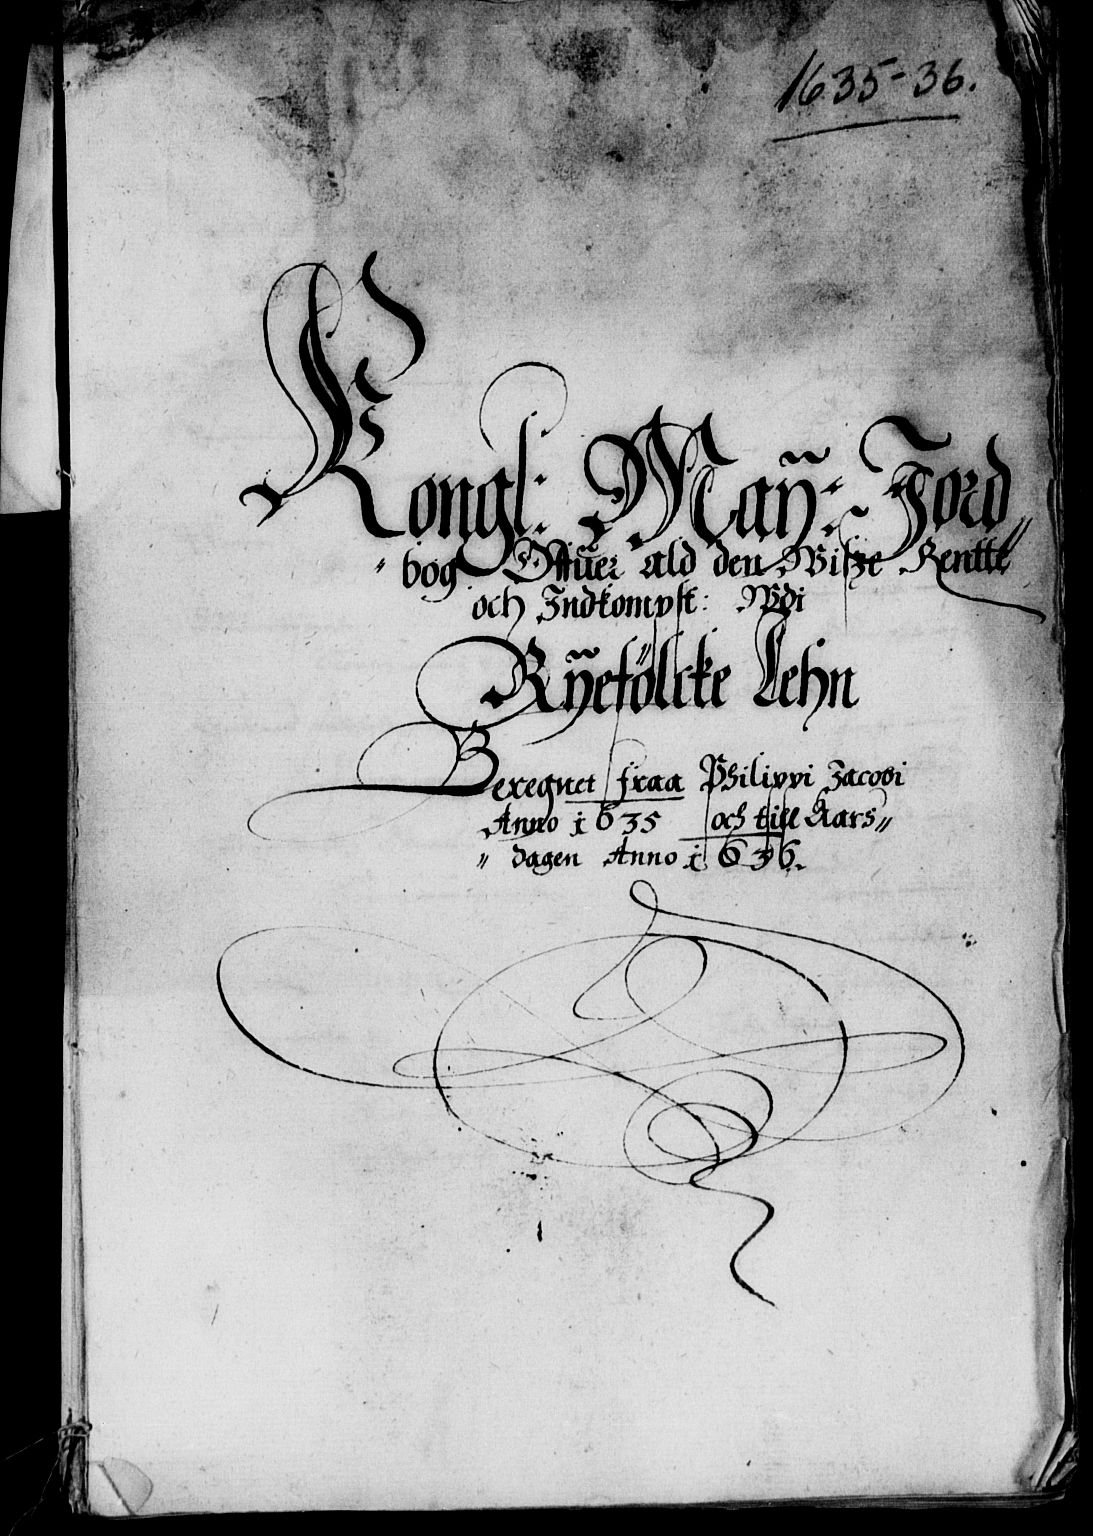 1635-36.
Kongl: Maÿ: Jord
bog Offuer ald den Wisze Rentte
och Indkompst: Wdi
Rÿefölcke Lehn
Beregnet fraa Philippi Jacobi
Anno 1635 och till Aars
dagen Anno 1636.